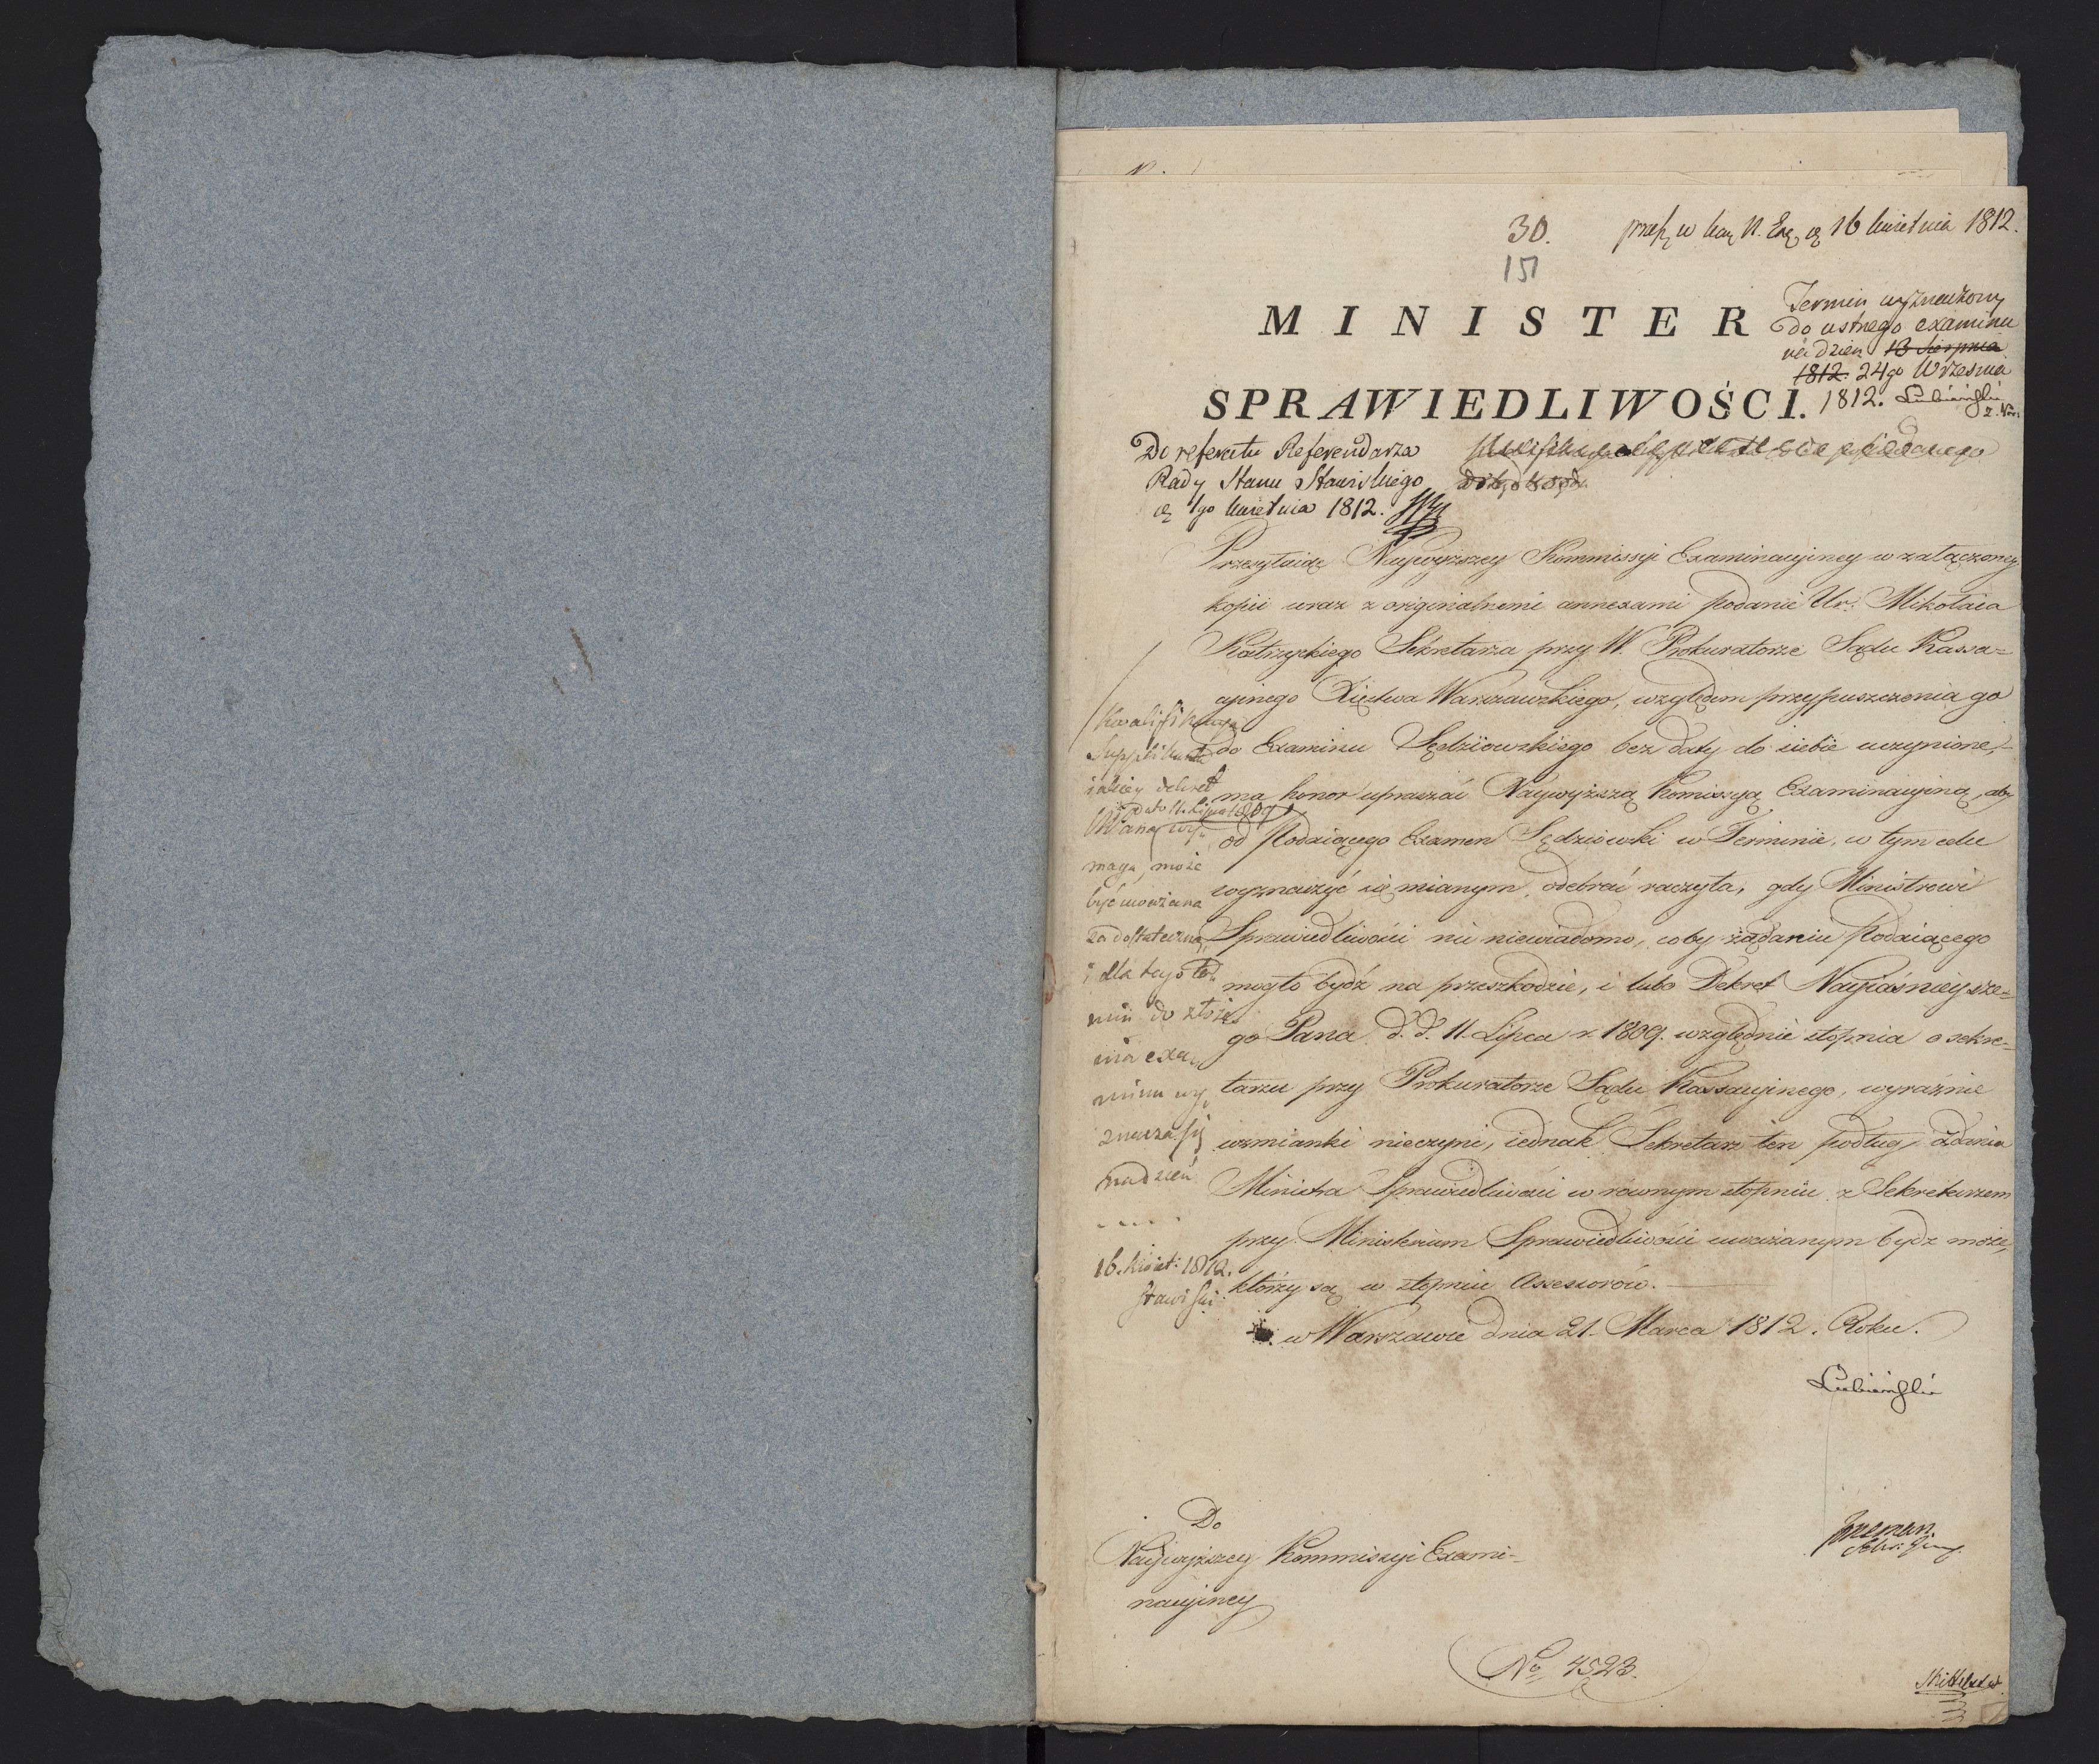 30. 16 kwietnia 1812.
151
MINISTER
Termin wyznaczony
do ustnego examinu
na dzień 13 Sierpnia
1812. 24go Września
1812. Lubieński
SPRAWIEDLIWOŚCI.
Do referatu Referendarza
Rady Stanu Stawiskiego
1go kwietnia 1812.
Przesyłaiąc Naywyższey Kommissyi Examinacyiney w załączoney
kopii wraz z originalnemi annexami podanie Ur. Mikołaia
Kostrzyckiego Sekretarza przy W. Prokuratorze Sądu Kassa=
cyinego Xięstwa Warszawskiego, względem przypuszczenia go
do Examinu Sędziowskiego bez daty do siebie uczynione,
ma honor upraszać Naywyższą Komissyą Examinacyiną, aby
od Podaiącego Examen Sędziowski w Terminie, w tym celu
wyznaczyć się mianym, odebrać raczyła, gdy Ministrowi
Sprawiedliwości nic niewiadomo, coby żądaniu Podaiącego
mogło bydź na przeszkodzie, i lubo Dekret Nayiaśnieysze=
go Pana d. d. 11. Lipca r. 1809. względnie stopnia o sekre=
tarzu przy Prokuratorze Sądu Kassacyinego, wyraźnie
wzmianki nieczyni, iednak Sekretarz ten podług zdania
Ministra Sprawiedliwości w równym stopniu z Sekretarzem
przy Ministerium Sprawiedliwości uważanym bydz może,
którzy są w stopniu Assessorów.
w Warszawie dnia 21. Marca 1812. Roku.
Lubieński
Kwalifikacya
Supplikanta
iakiey dekret
z dato 11. Lipca 1809
wy=
maga, może
być uważana
za dostateczną,
i dla tego ter=
min do złoże=
nia exa=
minu wy=
znacza się
na dzień
....
16. Kwiet: 1812.
Stawiski
Do
Naywyższey Kommissyi Exami=
nacyiney
No 4523.